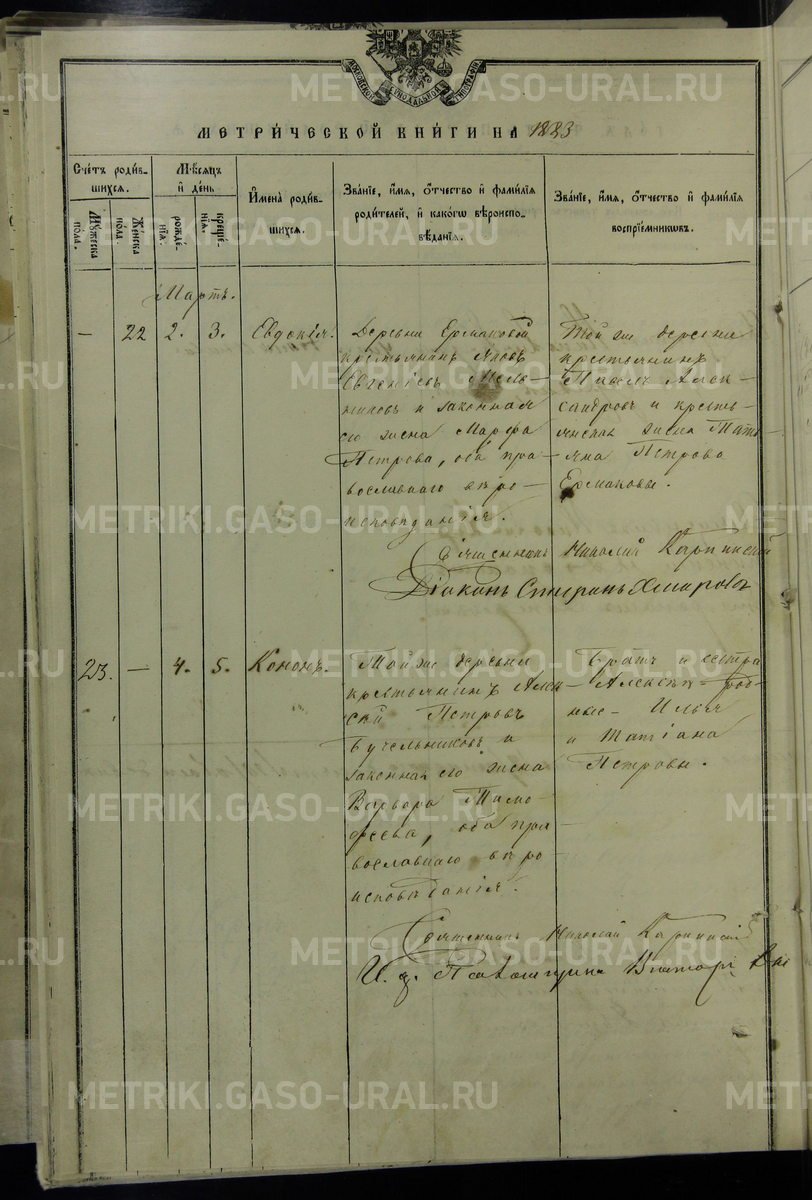 МОСКОВСКОЙ СѴНОДАЛЬНОЙ ТИПОГРАФІИ
МЕТРИ́ЧЕСКОЙ КНИ́ГИ НА 1883
Сче́тъ роди́в-
шихся.
Мѣ́сяцъ
и҆ де́нь
И҆мена̀ роди́в-
шихся.
Зва́нїе, и҆́мя, ѻ҆́тчество и҆ фами́лїя
роди́телей, и҆ како́гѡ вѣроиспо-
вѣ́данїя.
Зва́нїе, и҆́мя, ѻ҆́тчество и҆ фами́лїя
воспрїе́мникѡвъ.
Мꙋ́жеска по́ла.
Же́нска по́ла.
рожде́-нїя.
креще́-нїя.
Мартъ.
— 22 2. 3. Евдокія.
Деревни Ермаковой
крестьянинъ Яковъ
Евгеніевъ Мель-
никовъ и законная
его жена Марѳа
Петрова, оба пра-
вославнаго вѣро-
исповѣданія.
Той же деревни
крестьянинъ
Павелъ Алек-
сандровъ и кресть-
янская жена Тать-
яна Петрова
Ермаковы.
Священникъ Николай Карпинскій
Діаконъ
23. — 4. 5. Кононъ.
Той же деревни
крестьянинъ Алек-
сѣй Петровъ
Бучельниковъ и
законная его жена
Варвара Тимо-
феева, оба пра-
вославнаго вѣро
исповѣданія.
Братъ и сестра
Алексѣя род-
ные - Илья
и Татіана
Петровы.
Священникъ Николай Карпинскій
И. д. Псаломщика Викторъ
METRIKI.GASO-URAL.RU